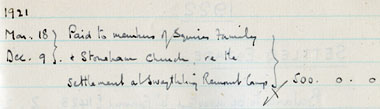 1921
Mar. 18 } Paid to members of Squires Family
Dec. 9 } & Stoneham Church, re the
settlement at Swaythling Remount Camp } 500. 0. 0